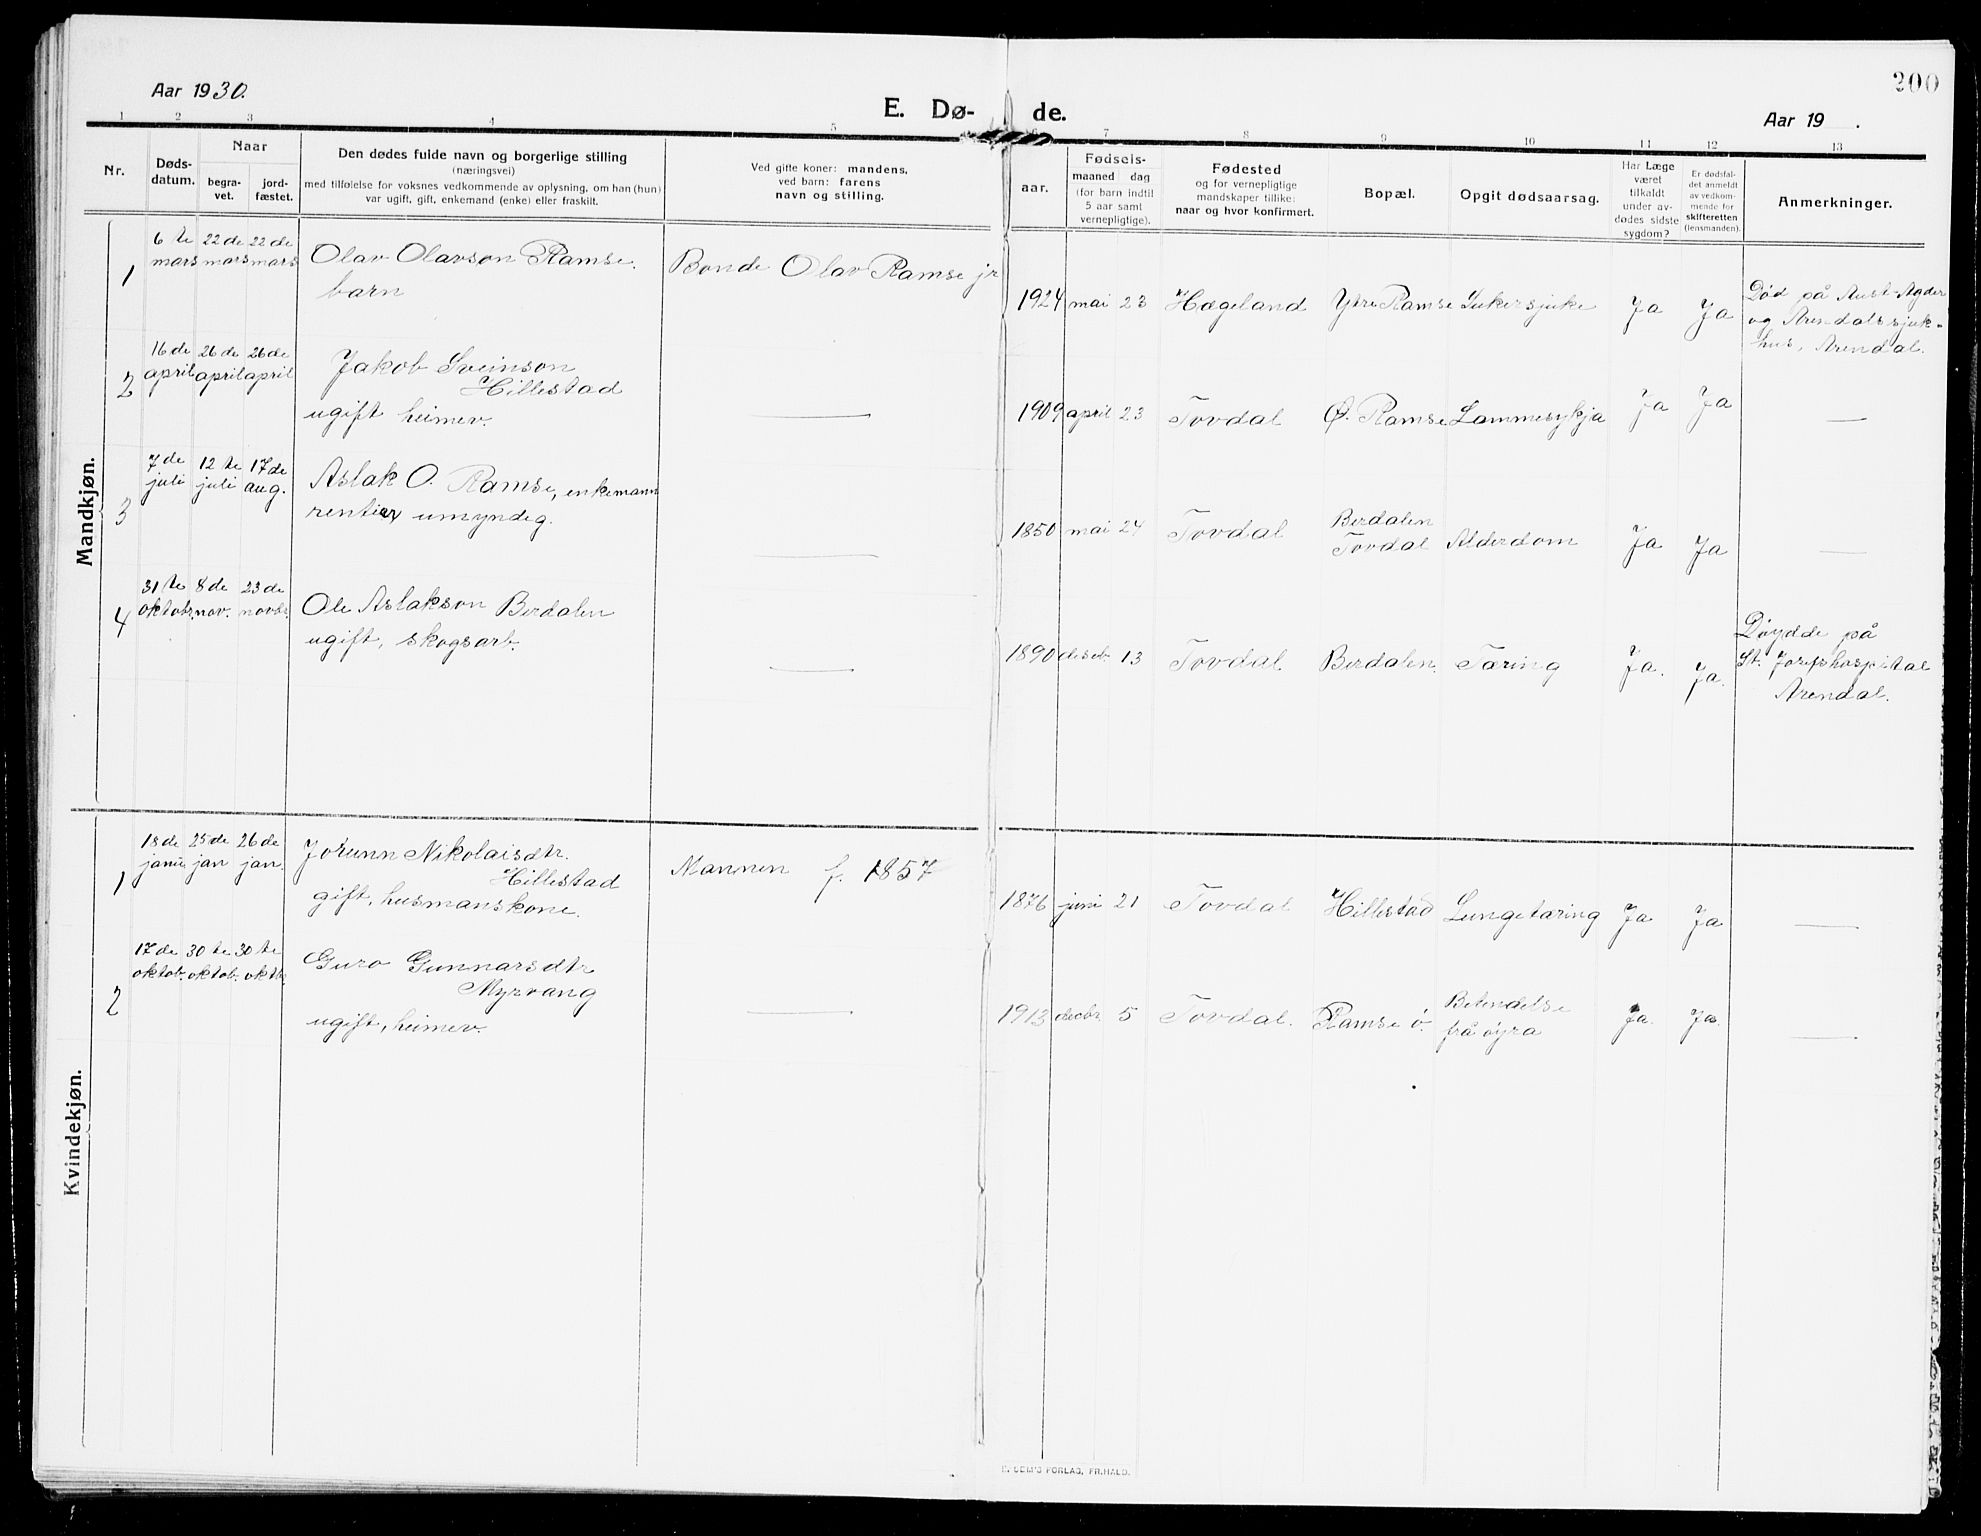 200
Aar 1930.
E. Dø- de.
Aar 19 .
1 2 3 4 5 6 7 8 9 10 11 12 13
Nr.
Døds-
datum.
Naar
begra-
vet.
jord-
fæstet.
Den dødes fulde navn og borgerlige stilling
(næringsvei)
med tilføielse for voksnes vedkommende av oplysning, om han (hun)
var ugift, gift, enkemand (enke) eller fraskilt.
Ved gifte koner: mandens,
ved barn: farens
navn og stilling.
aar.
Fødsels-
maaned dag
(for barn indtil
5 aar samt
vernepligtige).
Fødested
og for vernepligtige
mandskaper tillike:
naar og hvor konfirmert.
Bopæl.
Opgit dødsaarsag.
Har Læge
været
tilkaldt
under av-
dødes sidste
sygdom?
Er dødsfal-
det anmeldt
av vedkom-
mende for
skifteretten
(lensmanden).
Anmerkninger.
Mandkjøn.
1
6 te
mars
22 de
mars
22 de
mars
Olav Olavson Ramse.
barn
Bonde Olav Ramse jr
1924 mai 23 Hægeland Ytre Ramse Sukersjuke Ja Ja
Død på Aust-Agder
og Arendals sjuk-
hus, Arendal.
2
16 de
april
26 de
april
26 de
april
Jakob Sveinson
Hillestad
ugift heimev.
1909 april 23 Tovdal Ø. Ramse Lammesykja Ja Ja
3
7 de
juli
12 te
juli
17 de
aug.
Aslak O. Ramse, enkemann
rentier umyndig.
1850 mai 24 Tovdal
Berdalen
Tovdal
Alderdom Ja Ja
4
31 te
oktobr.
8 de
nov.
23 de
novbr.
Ole Aslakson Berdalen
ugift, skogsarb.
1890 deseb 13 Tovdal Berdalen. Tæring Ja. Ja.
Døydde på
St. Josefshospital
Arendal.
Kvindekjøn.
1
18 de
janu.
25 de
jan
26 de
jan.
Jorunn Nikolaisdtr.
Hillestad
gift, husmanskone.
Mannen f. 1857
1876 juni 21 Tovdal Hillestad Lungetæring Ja Ja
2
17 de
oktob.
30 te
oktob.
30 te
oktb.
Guro Gunnarsdtr
Myrvang
ugift, heimev.
1913 decbr. 5 Tovdal. Ramse ö.
Betendelse
frå öyra
Ja. Ja.
FORLAG, FR.HALD.